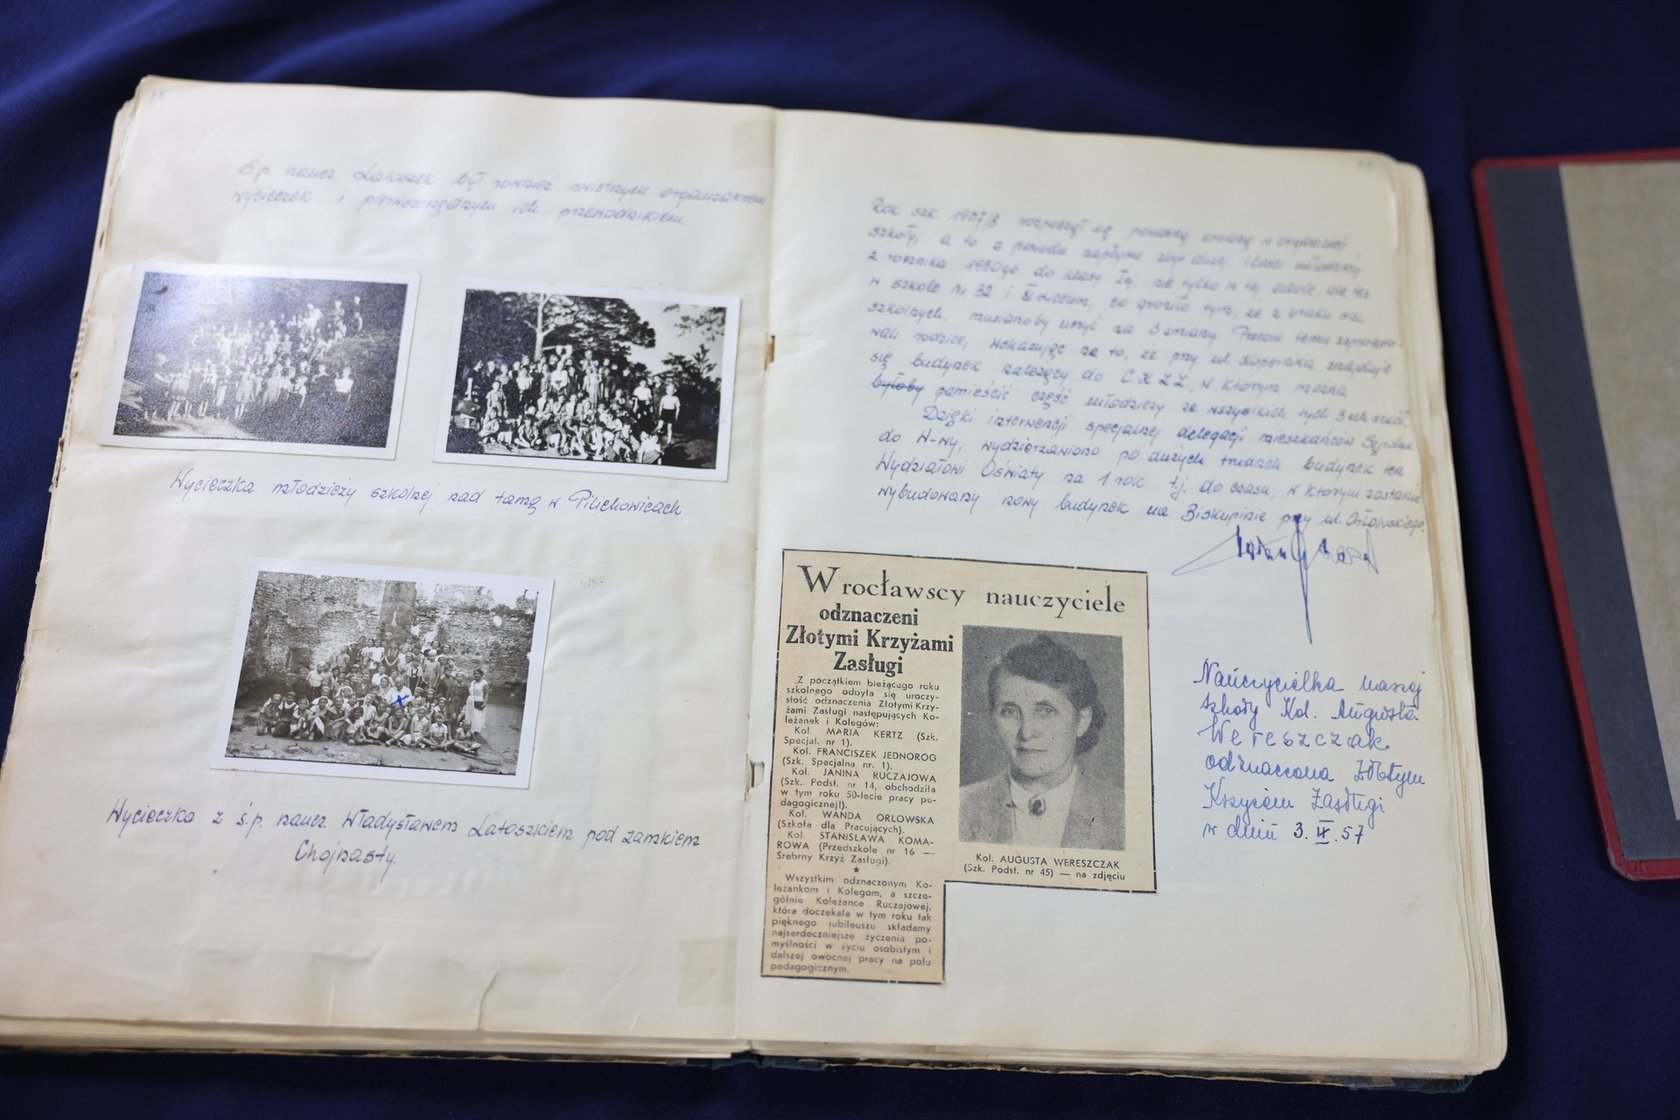 Ś.p. naucz. Latoszek był również świetnym organizatorem
wycieczek i pierwszorzędnym ich przewodnikiem.
Wycieczka młodzieży szkolnej nad tamą w Pilichowicach
Wycieczka z ś.p. naucz. Władysławem Latoszkiem pod zamkiem
Chojnasty.
Rok szk. 1957/8 rozpoczął się poważną zmianą w organizacji
szkoły, a to z powodu napływu zbyt dużej ilości młodzieży
z rocznika 1950go do klasy Iej, nie tylko w tej szkole, ale też
w szkole nr 32 i liceum, co groziło tym, że z braku sal
szkolnych, musianoby uczyć na 3 zmiany. Przeciw temu
wali rodzice, wskazując na to, że przy ul. znajduje
się budynek należący do C.R.Z.Z, w którym można
byłoby pomieścić część młodzieży ze wszystkich tych 3ech szkół.
Dzięki interwencji specjalnej delegacji mieszkańców Sępolna
do W-wy, wydzierżawiono po dużych trudach budynek ten
Wydziałowi Oświaty na 1 rok t.j. do czasu, w którym zostanie
wybudowany nowy budynek na Biskupinie przy ul. Orłowskiego.
Wrocławscy nauczyciele
odznaczeni
Złotymi Krzyżami
Zasługi
Z początkiem bieżącego roku
szkolnego odbyła się uroczy-
stość odznaczenia Złotymi Krzy-
żami Zasługi następujących Ko-
leżanek i Kolegów:
Kol. MARIA KERTZ (Szk.
Specjal. nr 1).
Kol. FRANCISZEK JEDNORÓG
(Szk. Specjalna nr. 1).
Kol. JANINA RUCZAJOWA
(Szk. Podst. nr 14, obchodziła
w tym roku 50-lecie pracy pe-
dagogicznej!).
Kol. WANDA ORLOWSKA
(Szkoła dla Pracujących).
Kol. STANISŁAWA KOMA-
ROWA (Przedszkole nr 16 —
Srebrny Krzyż Zasługi).
★
Wszystkim odznaczonym Ko-
leżankom i Kolegom, a szcze-
gólnie Koleżance Ruczajowej,
która doczekała w tym roku tak
pięknego jubileuszu składamy
najserdeczniejsze życzenia po-
myślności w życiu osobistym i
dalszej owocnej pracy na polu
pedagogicznym.
Kol. AUGUSTA WERESZCZAK
(Szk. Podst. nr 45) — na zdjęciu
Nauczycielka naszej
szkoły Kol. Augusta
Wereszczak
odznaczona Złotym
Krzyżem Zasługi
w dniu 3.IX.57